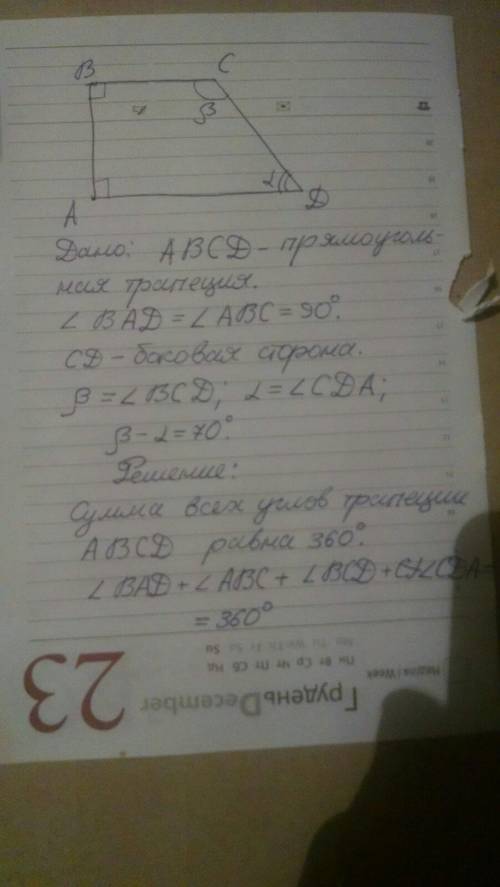 B C
β
α
A D
Дано: ABCD - прямоуголь-
ная трапеция.
∠ BAD = ∠ ABC = 90°.
CD - боковая сторона.
β = ∠ BCD; α = ∠ CDA;
β - α = 70°.
Решение:
Сумма всех углов трапеции
ABCD равна 360°.
∠ BAD + ∠ ABC + ∠ BCD + ∠CDA =
= 360°
Неділя | Week
Пн Вт Ср Чт Пт Сб Нд
Mo Tu We Th Fr Sa Su
ГруденьDecember
23